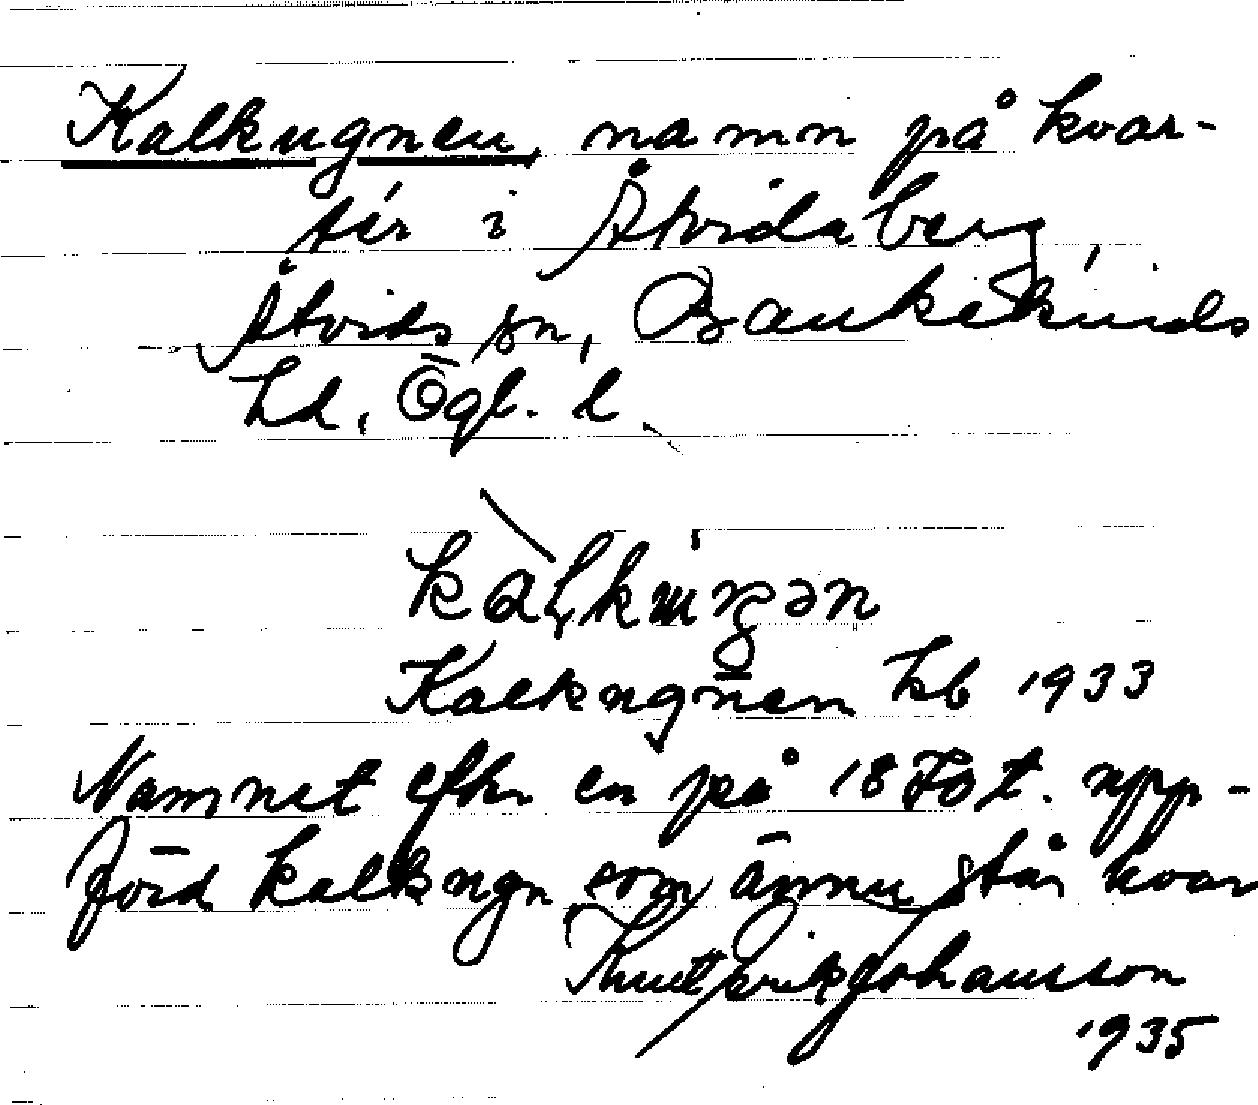 Kalkugnen, namn på kvar-
tér i Åtvidaberg,
Åtvids sn, Bankekinds
hd, Ögl. l.
Kalkugnen hb 1933
Namnet efter en på 1870 t. upp-
förd kalkugn som ännu står kvar
Knut Erik Johansson
1935